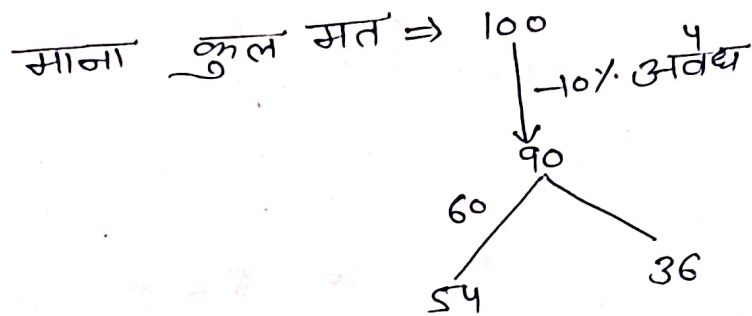 माना कुल मत ⇒ 100
-10% अवैध
90
60
54 36